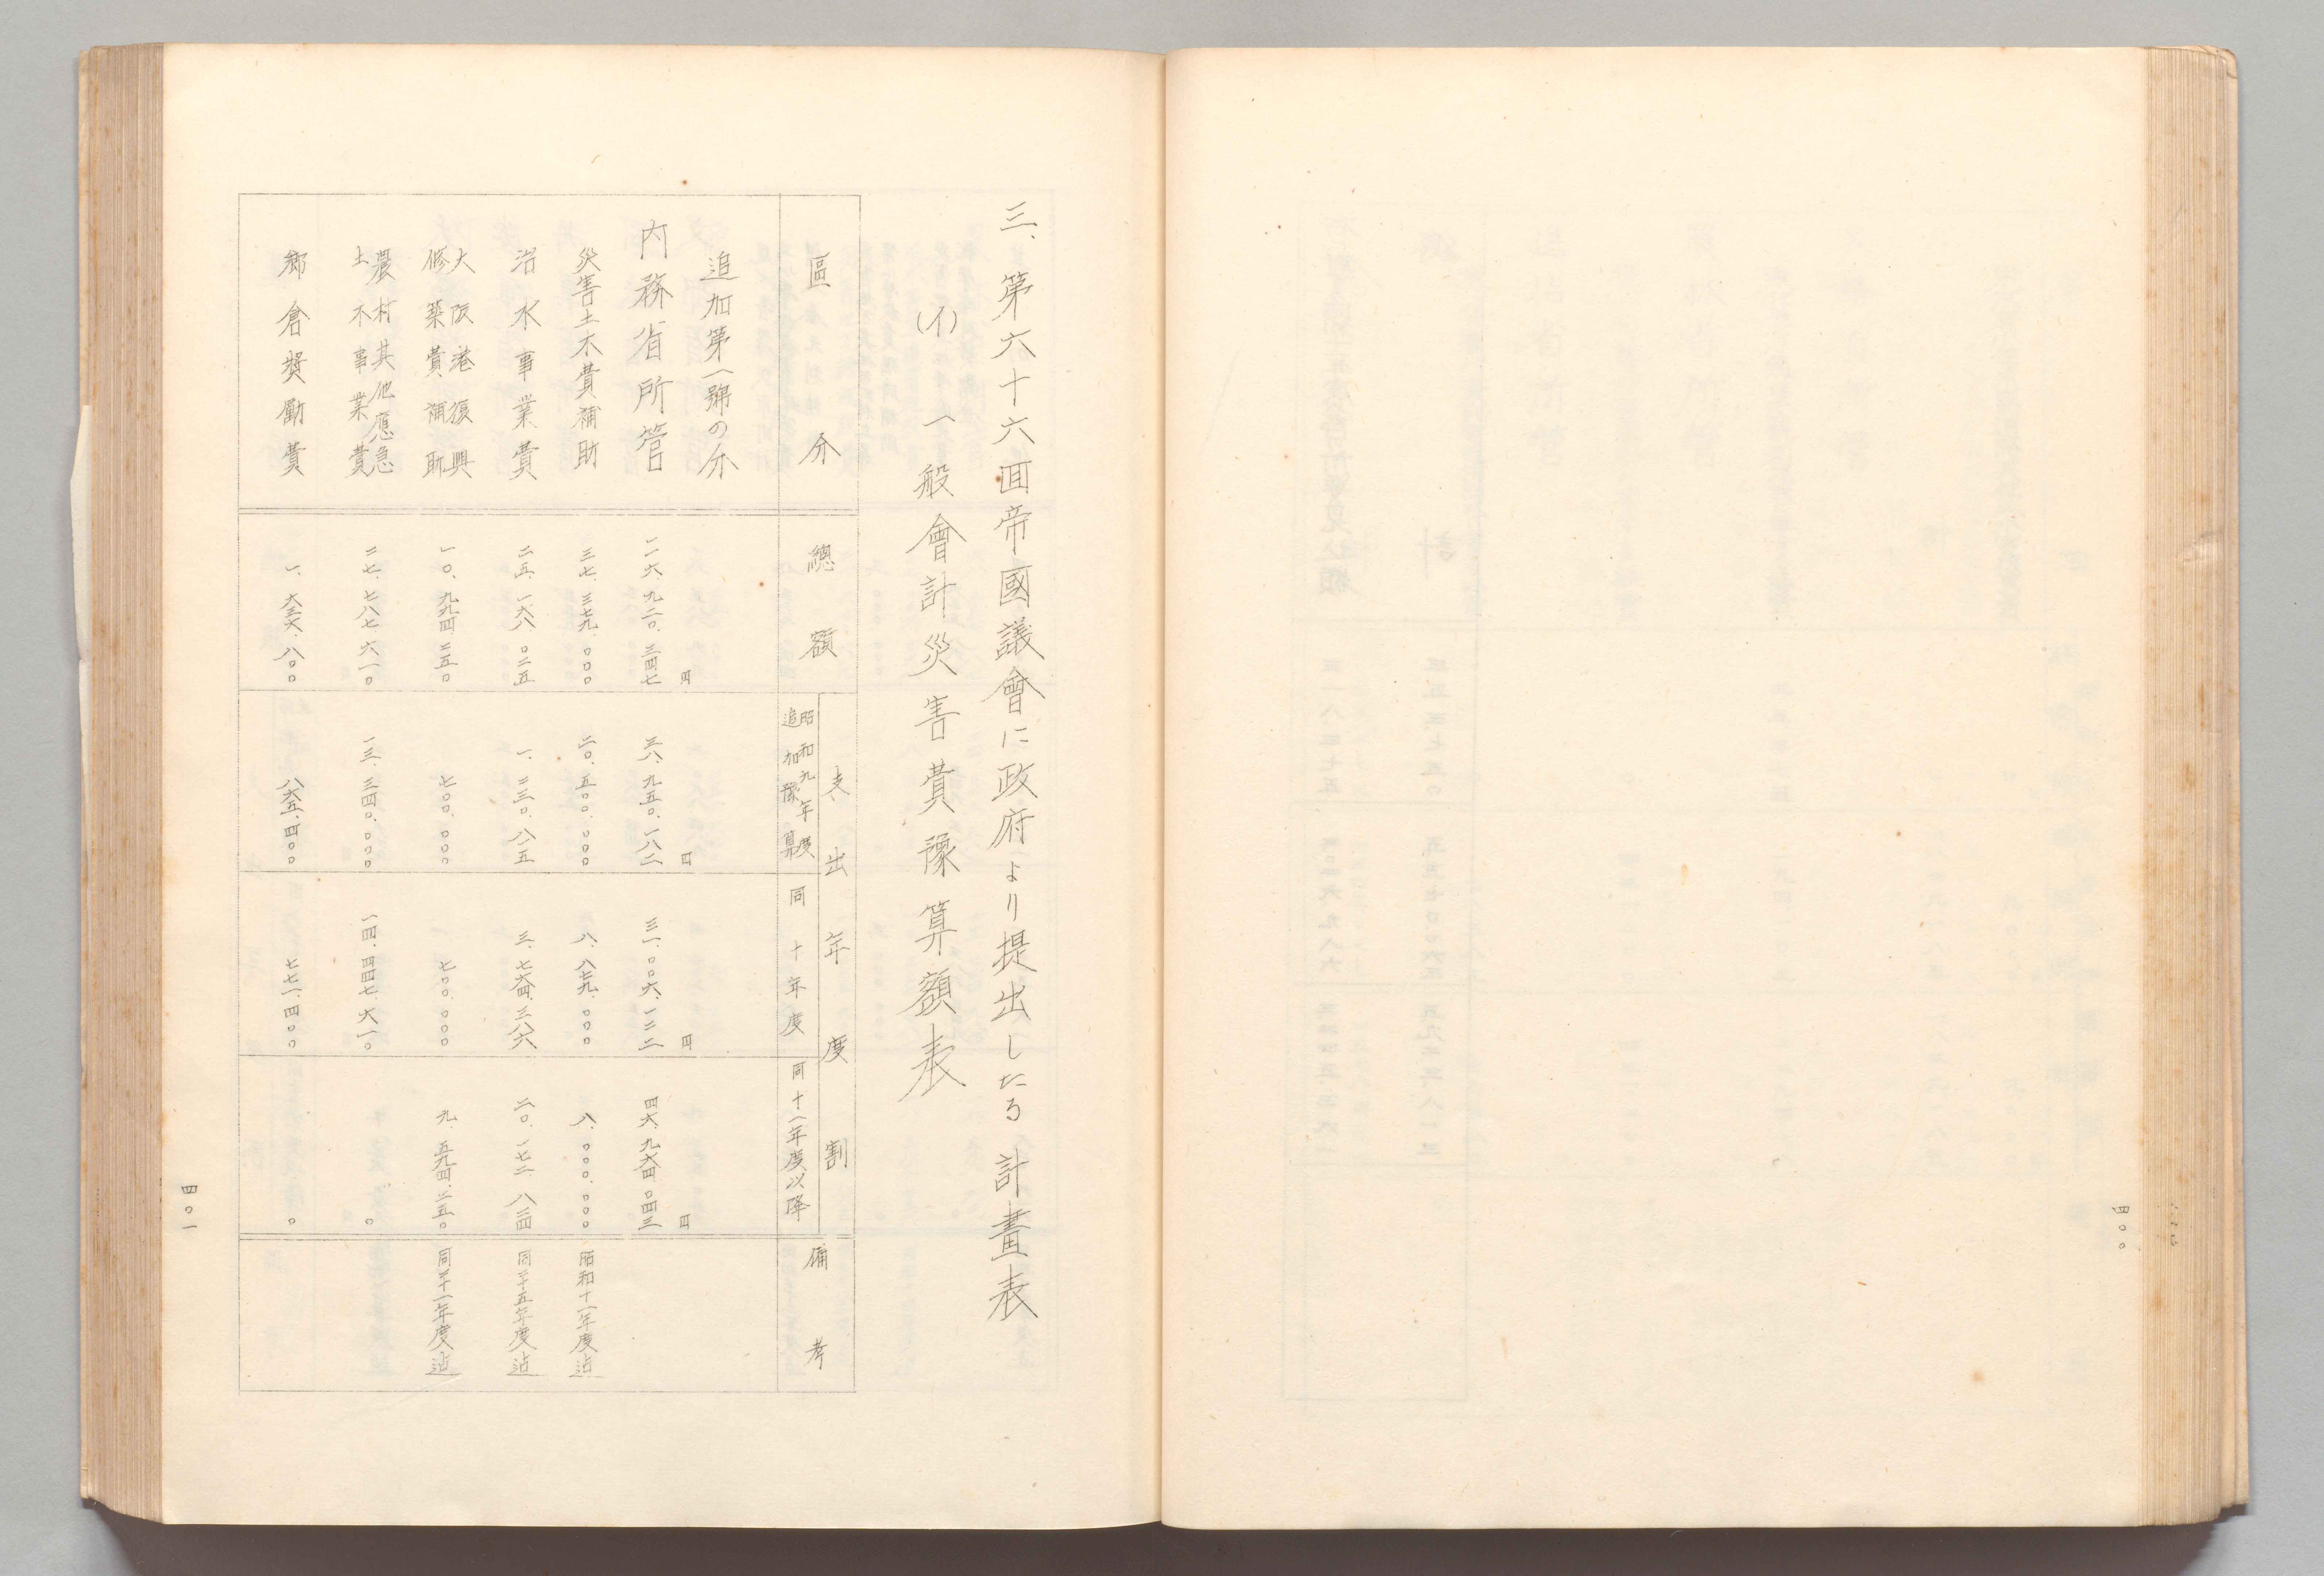 四〇〇
三、第六十六囬帝國議會に政府より提出したる計畫表
(イ) 一般會計災害費豫算額表
區分 總額 支出年度割 備考
昭和九年度追加豫算 同十年度 同十一年度以降
追加第一號の分
円 円 円 円
内務省所管 一一六、九二〇、三四七 三八、九五〇、一八二 三一、〇〇六、一二二 四六、九六四、〇四三
災害土木費補助 三七、三七九、〇〇〇 二〇、五〇〇、〇〇〇 八、八七九、〇〇〇 八、〇〇〇、〇〇〇 昭和十一年度迠
治水事業費 二五、一六八、〇二五 一、二三〇、八〇五 三、七六四、三八六 二〇、一七二、八三四 同二十五年度迠
大阪港復興修築費補助 一〇、九九四、二五〇 七〇〇、〇〇〇 七〇〇、〇〇〇 九、五九四、二五〇 同二十一年度迠
農村其他應急土木事業費 二七、七八七、六一〇 一三、三四〇、〇〇〇 一四、四四七、六一〇 〇
郷倉奨勵費 一、六三六、八〇〇 八六五、四〇〇 七七一、四〇〇 〇
四〇一